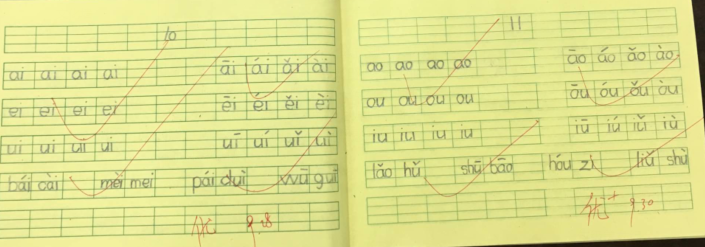 10
ai ai ai ai āi ái ǎi ài
ei ei ei ei ēi éi ěi èi
ui ui ui ui uī uí uǐ uì
bái cài mèi mei pái duì wū guī
优 9.28
11
ao ao ao ao āo áo ǎo ào
ou ou ou ou ōu óu ǒu òu
iu iu iu iu iū iú iǔ iù
lǎo hǔ shū bāo hóu zi liǔ shù
优+ 9.30